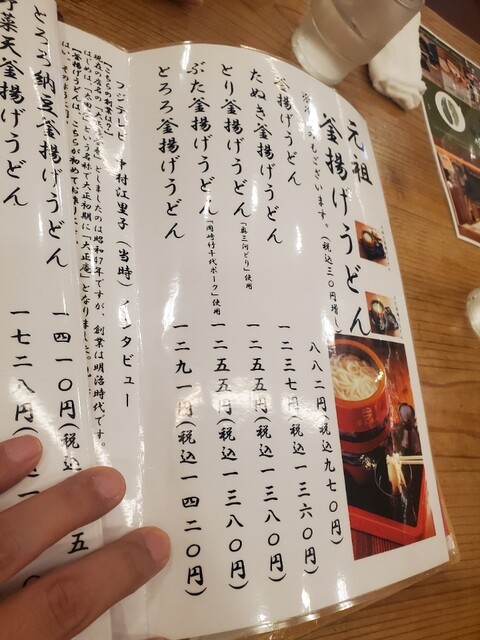 元祖
釜揚げうどん
ございます。(税込三〇円増)
釜揚げうどん 八八二円(税込九七〇円)
たぬき釜揚げうどん 一二三七円(税込一三六〇円)
とり釜揚げうどん「奥三河どり」使用 一二五五円(税込一三八〇円)
ぶた釜揚げうどん「岡崎竹千代ポーク」使用 一二五五円(税込一三八〇円)
とろろ釜揚げうどん 一二九一円(税込一四二〇円)
フジテレビ 中村江里子(当時)インタビュー
「こちらの創業は?」
現在の店名の
としましたのは昭和47年ですが、創業は明治時代です。
はじめは、「太田
という名称で大正初期に「大正庵」となりました。
「釜揚げうどんは、こちらが初めて
はい、そのようです。
とろろ納豆釜揚げうどん 一四一〇円(税込一五五
野菜天釜揚げうどん 一七二八円(